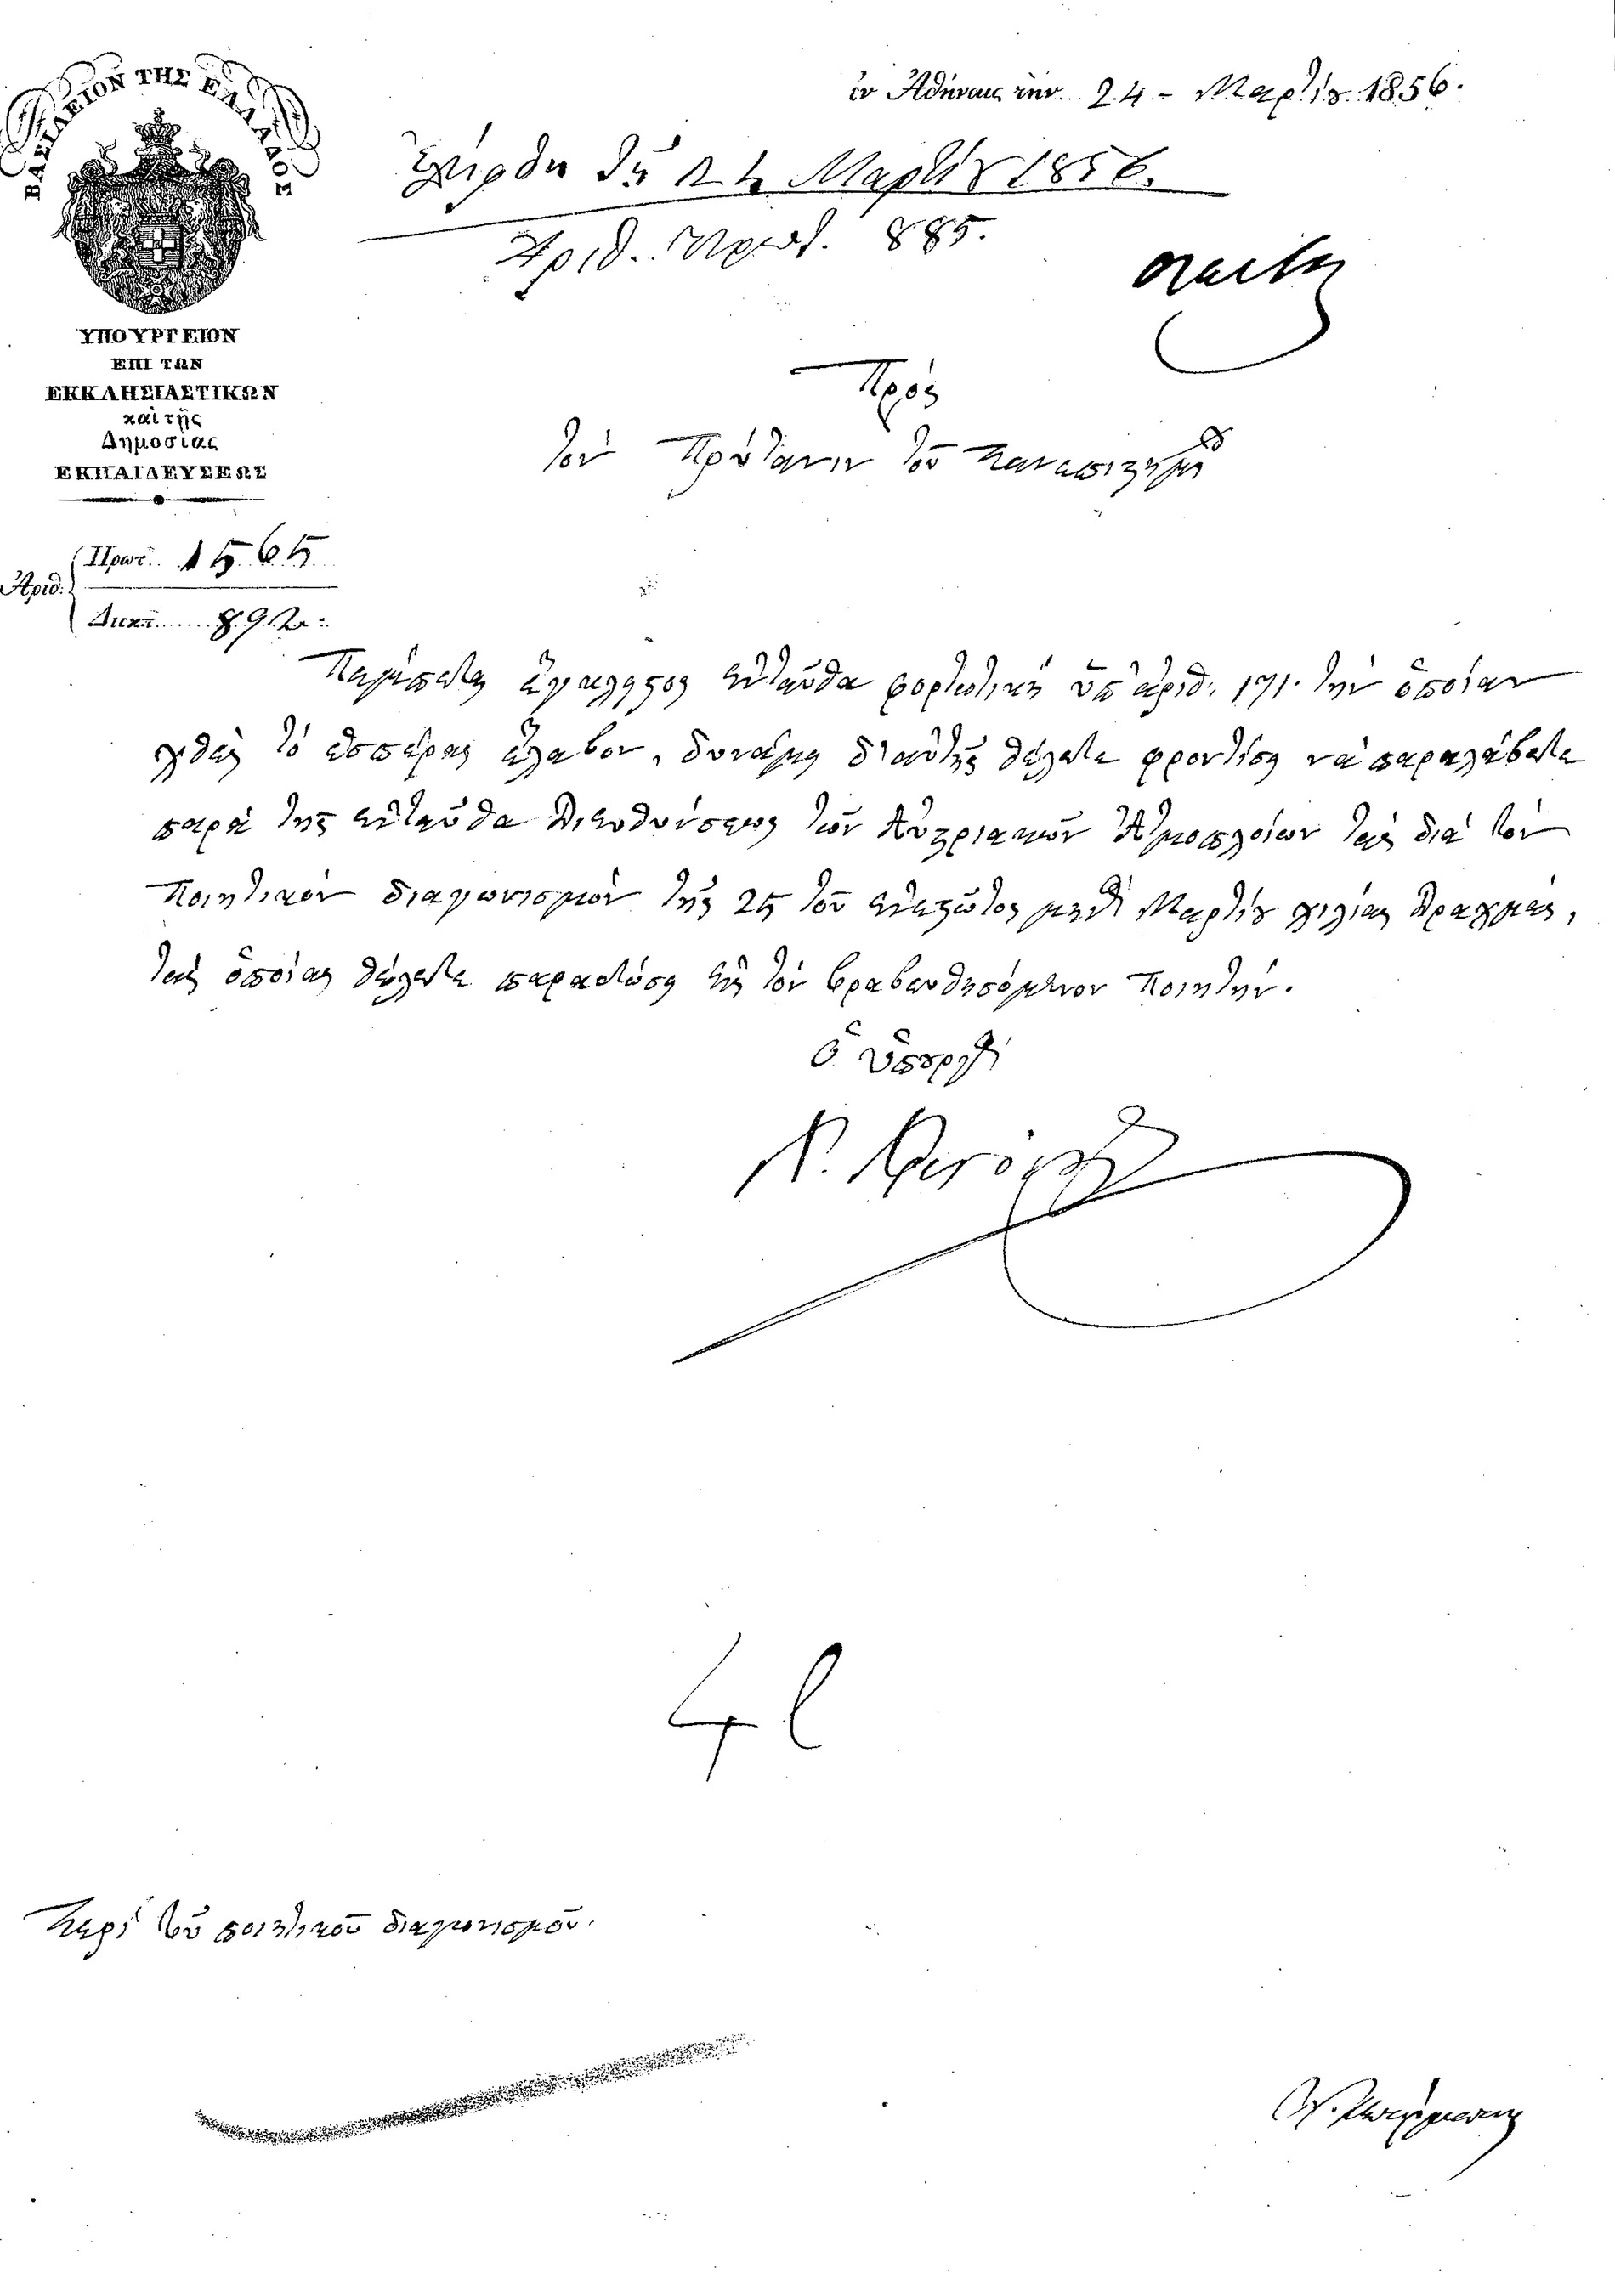 ΒΑΣΙΛΕΙΟΝ ΤΗΣ ΕΛΛΑΔΟΣ
ἐν Ἀθήναις τὴν 24 - Μαρτίου 1856.
Μαρτίου 1856.
Ἀριθ. Πρωτ. 885.
ΥΠΟΥΡΓΕΙΟΝ
ΕΠΙ ΤΩΝ
ΕΚΚΛΗΣΙΑΣΤΙΚΩΝ
καὶ τῆς
Δημοσίας
ΕΚΠΑΙΔΕΥΣΕΩΣ
Πρὸς
τὸν Πρύτανιν τοῦ Πανεπιστημίου
Ἀριθ. Πρωτ. 1565
Διεκπ. 892
Πέμπεται ἐγκλείστως ἐνταῦθα φορτωτικὴ ὑπ' ἀριθ. 171. τὴν ὁποίαν
χθὲς τὸ ἑσπέρας ἔλαβον, δυνάμει δι' αὐτῆς θέλετε φροντίσει νὰ παραλάβετε
παρὰ τῆς ἐνταῦθα Διευθύνσεως τῶν Αὐστριακῶν Ἀτμοπλοίων τὰς διὰ τὸν
Ποιητικὸν διαγωνισμὸν τῆς 25 τοῦ ἐνεστῶτος μηνὸς Μαρτίου χιλίας δραχμὰς,
τὰς ὁποίας θέλετε παραδώσει εἰς τὸν βραβευθησόμενον Ποιητήν.
Ὁ Ὑπουργὸς
Περὶ τοῦ ποιητικοῦ διαγωνισμοῦ.